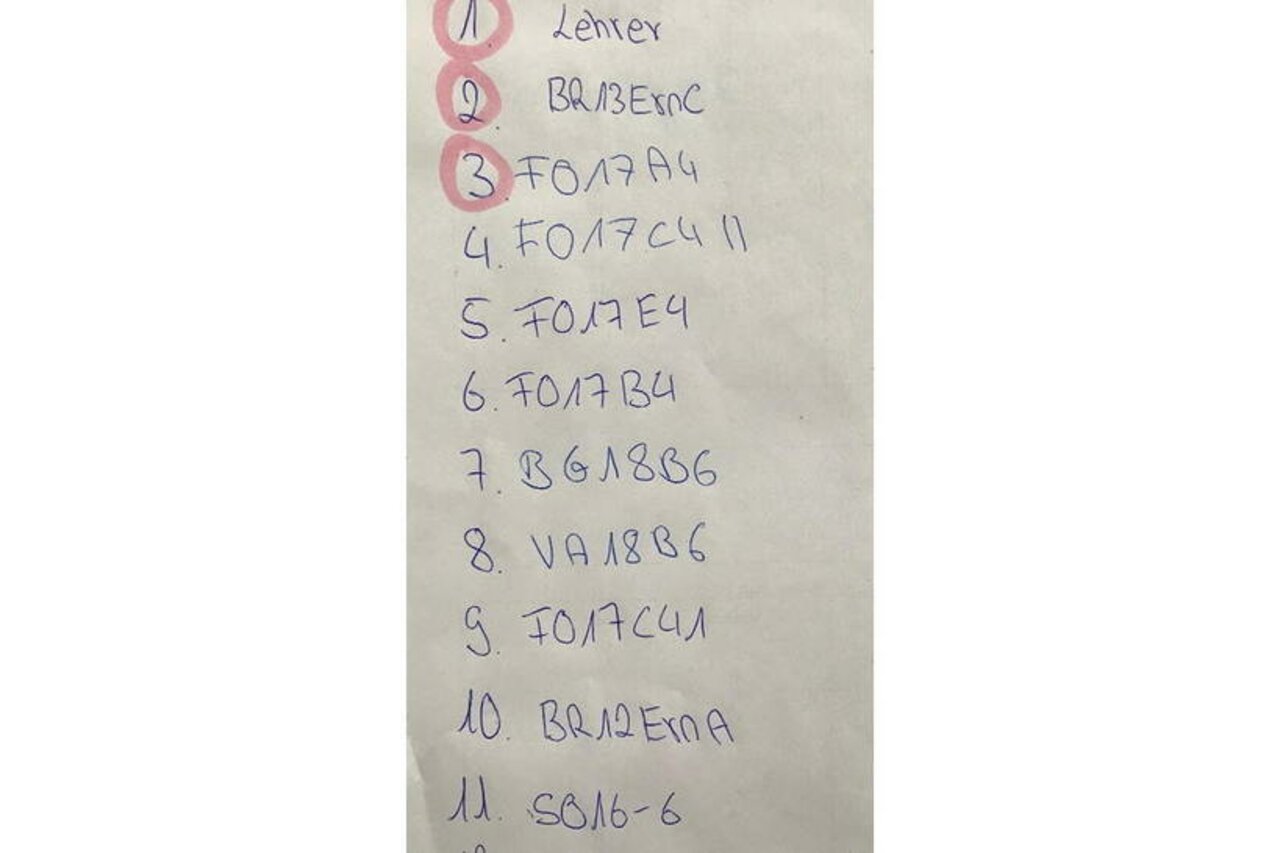 1. Lehrer
2. BR13ErnC
3. FO17A4
4. FO17C4 II
5. FO17E4
6. FO17B4
7. BG18B6
8. VA18B6
9. FO17C41
10. BR12ErnA
11. SO16-6